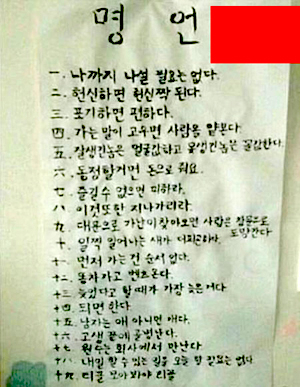 명언
一. 나까지 나설 필요는 없다.
二. 헌신하면 헌신짝 된다.
三. 포기하면 편하다.
四. 가는 말이 고우면 사람을 얕본다.
五. 잘생긴놈은 얼굴값하고 못생긴놈은 꼴값한다.
六. 동정할거면 돈으로 줘요.
七. 즐길수 없으면 피하라.
八. 이것또한 지나가리라.
九. 대문으로 가난이 찾아보면 사랑은 창문으로
도망간다
十. 일찍 일어나는 새가 더피곤하다.
十一. 먼저 가는건 순서 없다.
十二. 똥차가고 벤츠온다.
十三. 늦었다고 할때가 가장 늦은거다
十四. 되면 한다.
十五. 남자는 애 아니면 개다.
十六. 고생 끝에 골병난다.
十七. 원수는 회사에서 만난다
十八. 내일 할 수 있는 일을 오늘 할 필요는 없다.
十九. 티끌 모아봐야 티끌